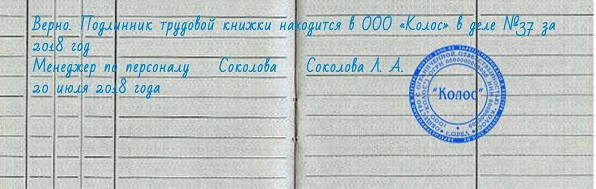 Верно. Подлинник трудовой книжки находится в ООО «Колос» в деле №37 за
2018 год
Менеджер по персоналу Соколова Соколова Л. А.
20 июля 2018 года
"Колос"
Г.ОРЕЛ